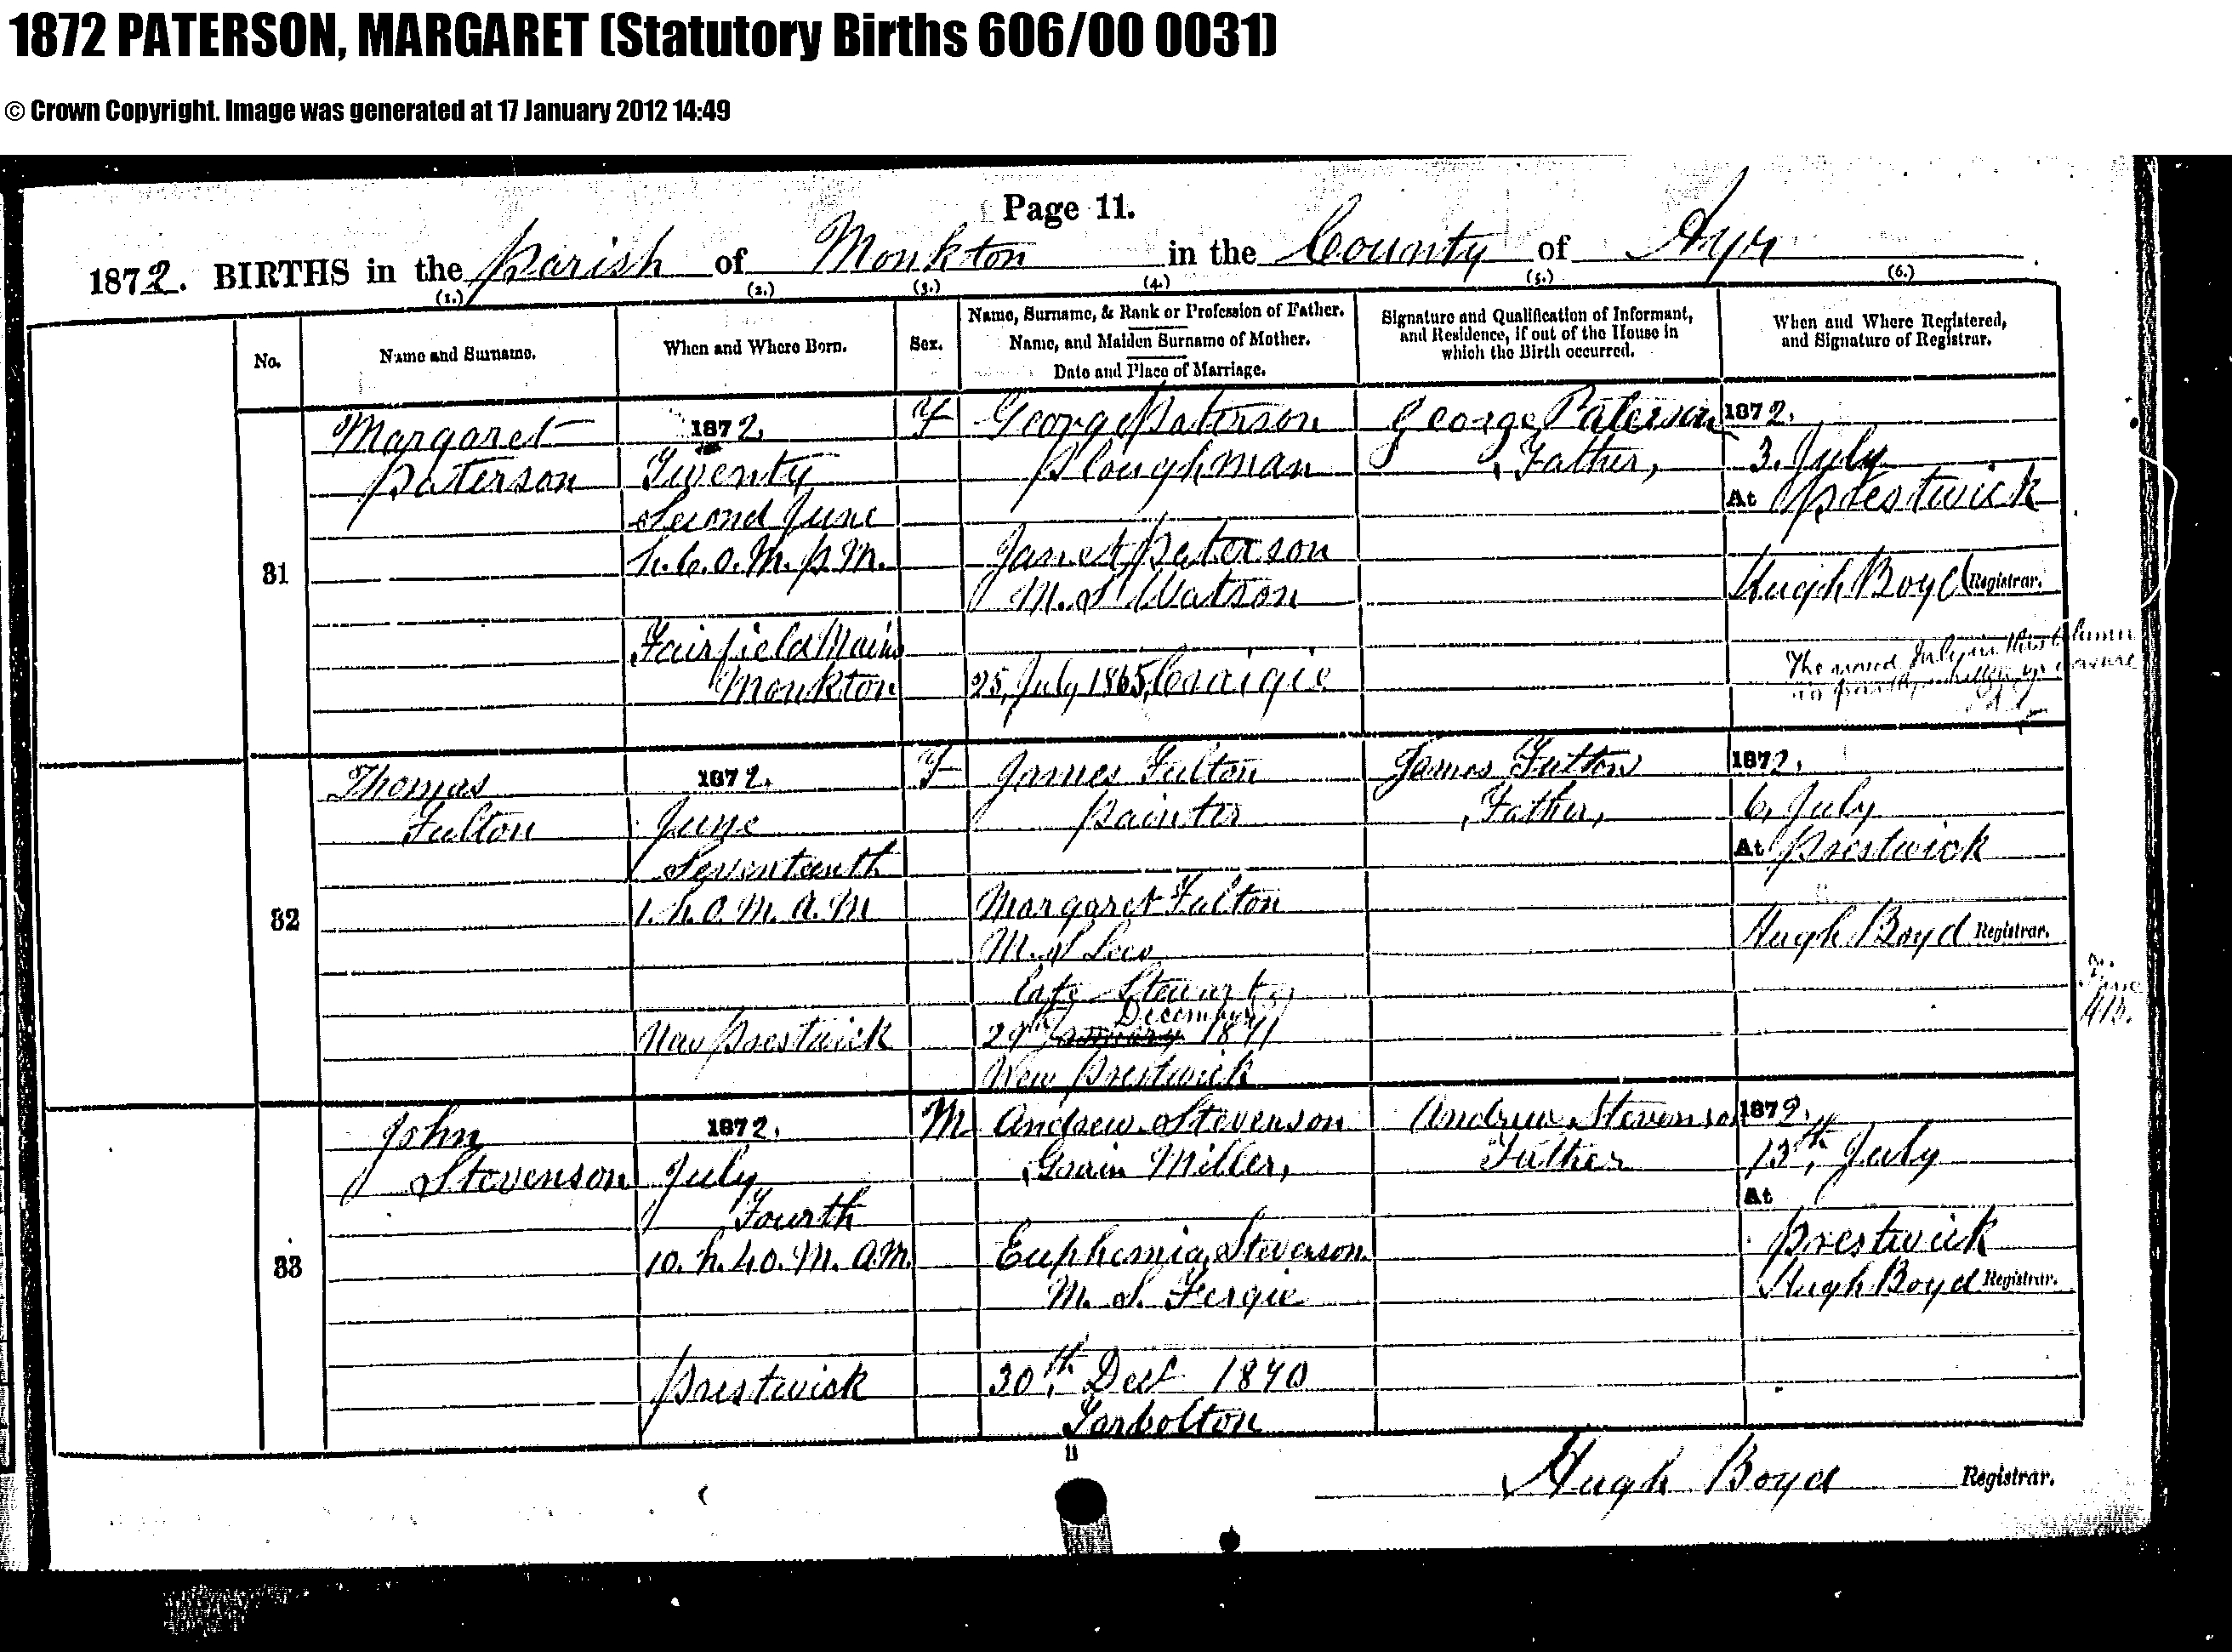 1872 PATERSON, MARGARET (Statutory Births 606/00 0031)
© Crown Copyright. Image was generated at 17 January 2012 14:49
Page 11.
1872. BIRTHS in the Parish of Monkton in the County of Ayr
(1.) (2.) (3.) (4.) (5.) (6.)
No.
Name and Surname.
When and Where Born.
Sex.
Name, Surname, & Rank or Profession of Father.
Name, and Maiden Surname of Mother.
Date and Place of Marriage.
Signature and Qualification of Informant,
and Residence, if out of the House in
which the Birth occurred.
When and Where Registered,
and Signature of Registrar.
31
Margaret
Paterson
1872.
Twenty
Second June
h. 6. 0. M. P. M.
Fairfield Mains
Monkton
F
George Paterson
Ploughman
Janet Paterson
M. S Watson
25, July 1865, Craigie
George Paterson
, Father,
1872.
3. July
At Prestwick
Hugh Boyd Registrar.
The word July in this column
32
Thomas
Fulton
1872.
June
Seventeenth
1. h. 0. M. A. M
New Prestwick
F
James Fulton
Painter
Margaret Fulton
M. S
Stewart
December
29th January 1871
New Prestwick
James Fulton
, Father,
1872.
6, July
At Prestwick
Hugh Boyd Registrar.
33
John
Stevenson
1872.
July
Fourth
10. h. 40. M. A.M.
Prestwick
M
Andrew Stevenson
, Grain Miller,
Euphemia Stevenson
M. S. Fergie
30th, Decr 1870
Tarbolton
Andrew Stevenson
Father
1872.
13th, July
At
Prestwick
Hugh Boyd Registrar.
11
Hugh Boyd Registrar.